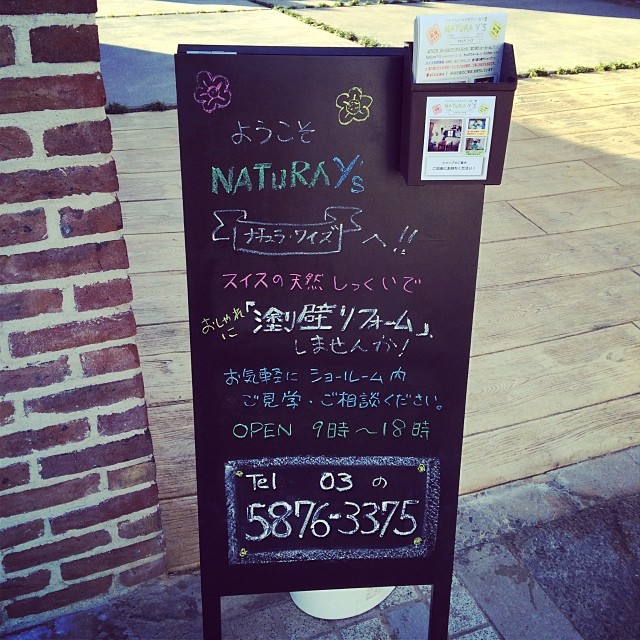 ようこそ
NATURA Y's
ナチュラ・ワイズ へ!!
スイスの天然しっくいで
おしゃれに「塗り壁リフォーム」
しませんか!
お気軽に ショールーム内
ご見学・ご相談ください。
OPEN 9時〜18時
Tel 03 の
5876-3375
NATURA Y'S
NATURA Y'S